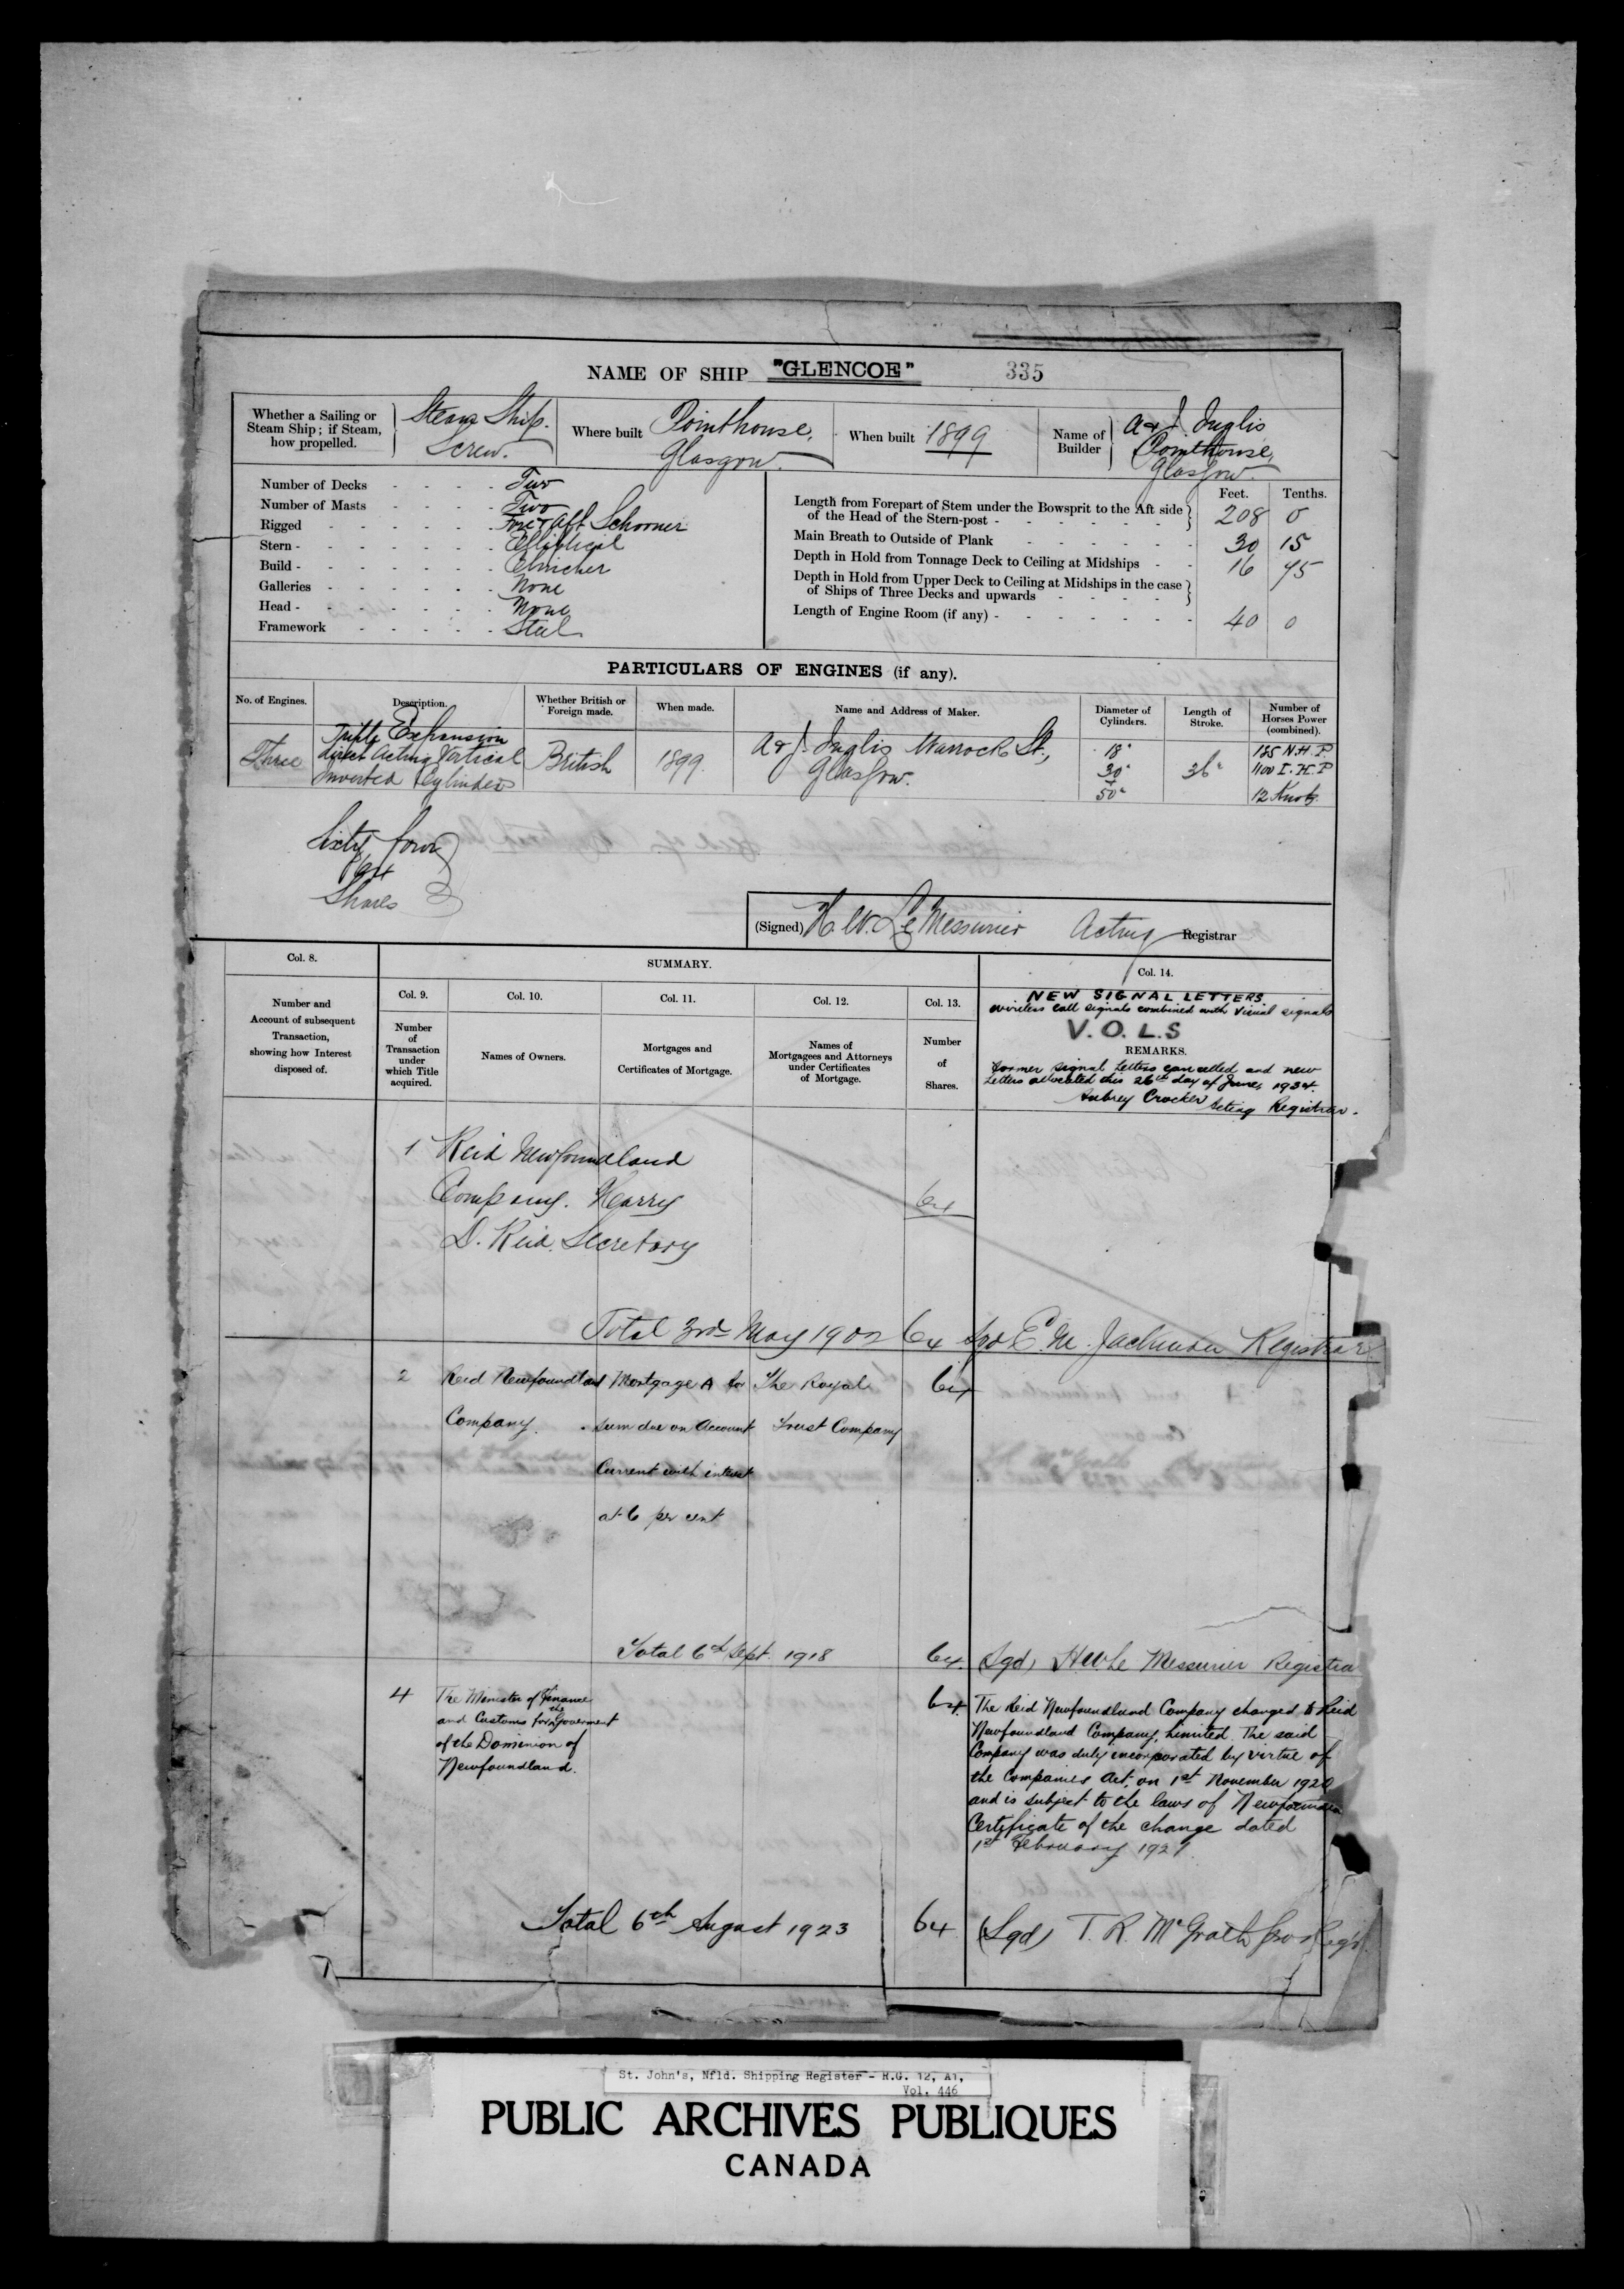 NAME OF SHIP "GLENCOE" 335
Whether a Sailing or
Steam Ship; if Steam,
how propelled.
Steam Ship.
Screw.
Where built Pointhouse,
Glasgow.
When built 1899
Name of
Builder
A & J. Inglis
Pointhouse,
Glasgow.
Number of Decks - - - - Two
Number of Masts - - - - Two
Rigged - - - - - - Fore & Aft Schooner
Stern - - - - - - - Elliptical
Build - - - - - - - Clincher
Galleries - - - - - - None
Head - - - - - - - None
Framework - - - - - Steel
Feet. Tenths.
Length from Forepart of Stem under the Bowsprit to the Aft side
of the Head of the Stern-post - - - - - - 208 0
Main Breath to Outside of Plank - - - - - - 30 15
Depth in Hold from Tonnage Deck to Ceiling at Midships - - 16 45
Depth in Hold from Upper Deck to Ceiling at Midships in the case
of Ships of Three Decks and upwards - - - -
Length of Engine Room (if any) - - - - - - - 40 0
PARTICULARS OF ENGINES (if any).
No. of Engines.
Description.
Whether British or
Foreign made.
When made.
Name and Address of Maker.
Diameter of
Cylinders.
Length of
Stroke.
Number of
Horses Power
(combined).
Three
Triple Expansion
direct Acting Vertical
Inverted Cylinders
British
1899.
A & J. Inglis Warrock St.,
Glasgow.
18"
30"
50"
36"
185 N.H.P
1100 I.H.P
12 Knots.
Sixty four
64
Shares
(Signed) H. W. Le Messurier Acting Registrar
Col. 8.
Number and
Account of subsequent
Transaction,
showing how Interest
disposed of.
SUMMARY.
Col. 9.
Number
of
Transaction
under
which Title
acquired.
Col. 10.
Names of Owners.
Col. 11.
Mortgages and
Certificates of Mortgage.
Col. 12.
Names of
Mortgagees and Attorneys
under Certificates
of Mortgage.
Col. 13.
Number
of
Shares.
Col. 14.
NEW SIGNAL LETTERS
wireless call signals combined with visual signals
V. O. L. S
REMARKS.
Former signal letters cancelled and new
letters allocated this 26th day of June, 1934.
Aubrey Crocker Acting Registrar.
1 Reid Newfoundland
Company. Harry
D. Reid. Secretary
64
Total 3rd May 1902 64 Sgd E. M. Jackman Registrar
2 Reid Newfoundland
Company.
Mortgage A for
sum due on Account
Current with interest
at 6 per cent
The Royal
Trust Company
64
Total 6th Sept. 1918 64. (Sgd) H W Le Messurier Registrar
4 The Minister of Finance
and Customs for the Goverment
of the Dominion of
Newfoundland.
64. The Reid Newfoundland Company changed to Reid
Newfoundland Company, Limited. The said
Company was duly incorporated by virtue of
the Companies Act, on 1st November 1920
and is subject to the laws of Newfoundland
Certificate of the change dated
1st February 1921
Total 6th August 1923 64 (Sgd) T. R. McGrath pro Regr.
St. John's, Nfld. Shipping Register - R.G. 12, A1,
Vol. 446
PUBLIC ARCHIVES PUBLIQUES
CANADA